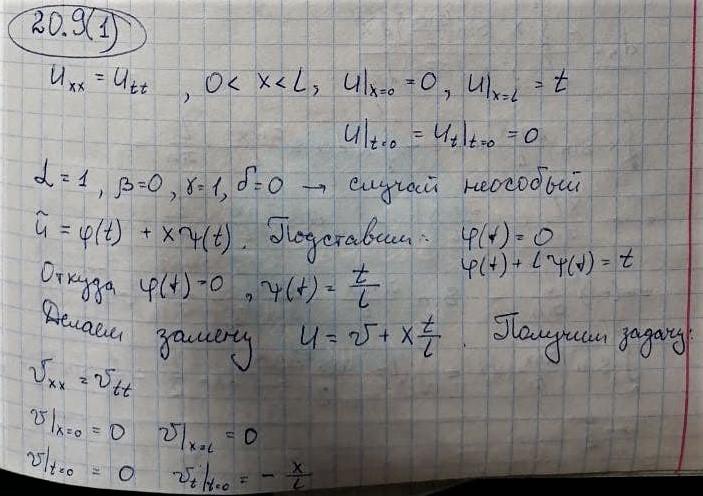 20.9(1)
u_xx = u_tt , 0 < x < l, u|_x=0 = 0, u|_x=l = t
u|_t=0 = u_t|_t=0 = 0
α = 1, β = 0, γ = 1, δ = 0 → случай неособый
ũ = φ(t) + xψ(t). Подставим: φ(t) = 0
φ(t) + lψ(t) = t
Откуда φ(t) = 0, ψ(t) = t/l
Делаем замену u = v + x t/l. Получим задачу:
v_xx = v_tt
v|_x=0 = 0 v|_x=l = 0
v|_t=0 = 0 v_t|_t=0 = - x/l